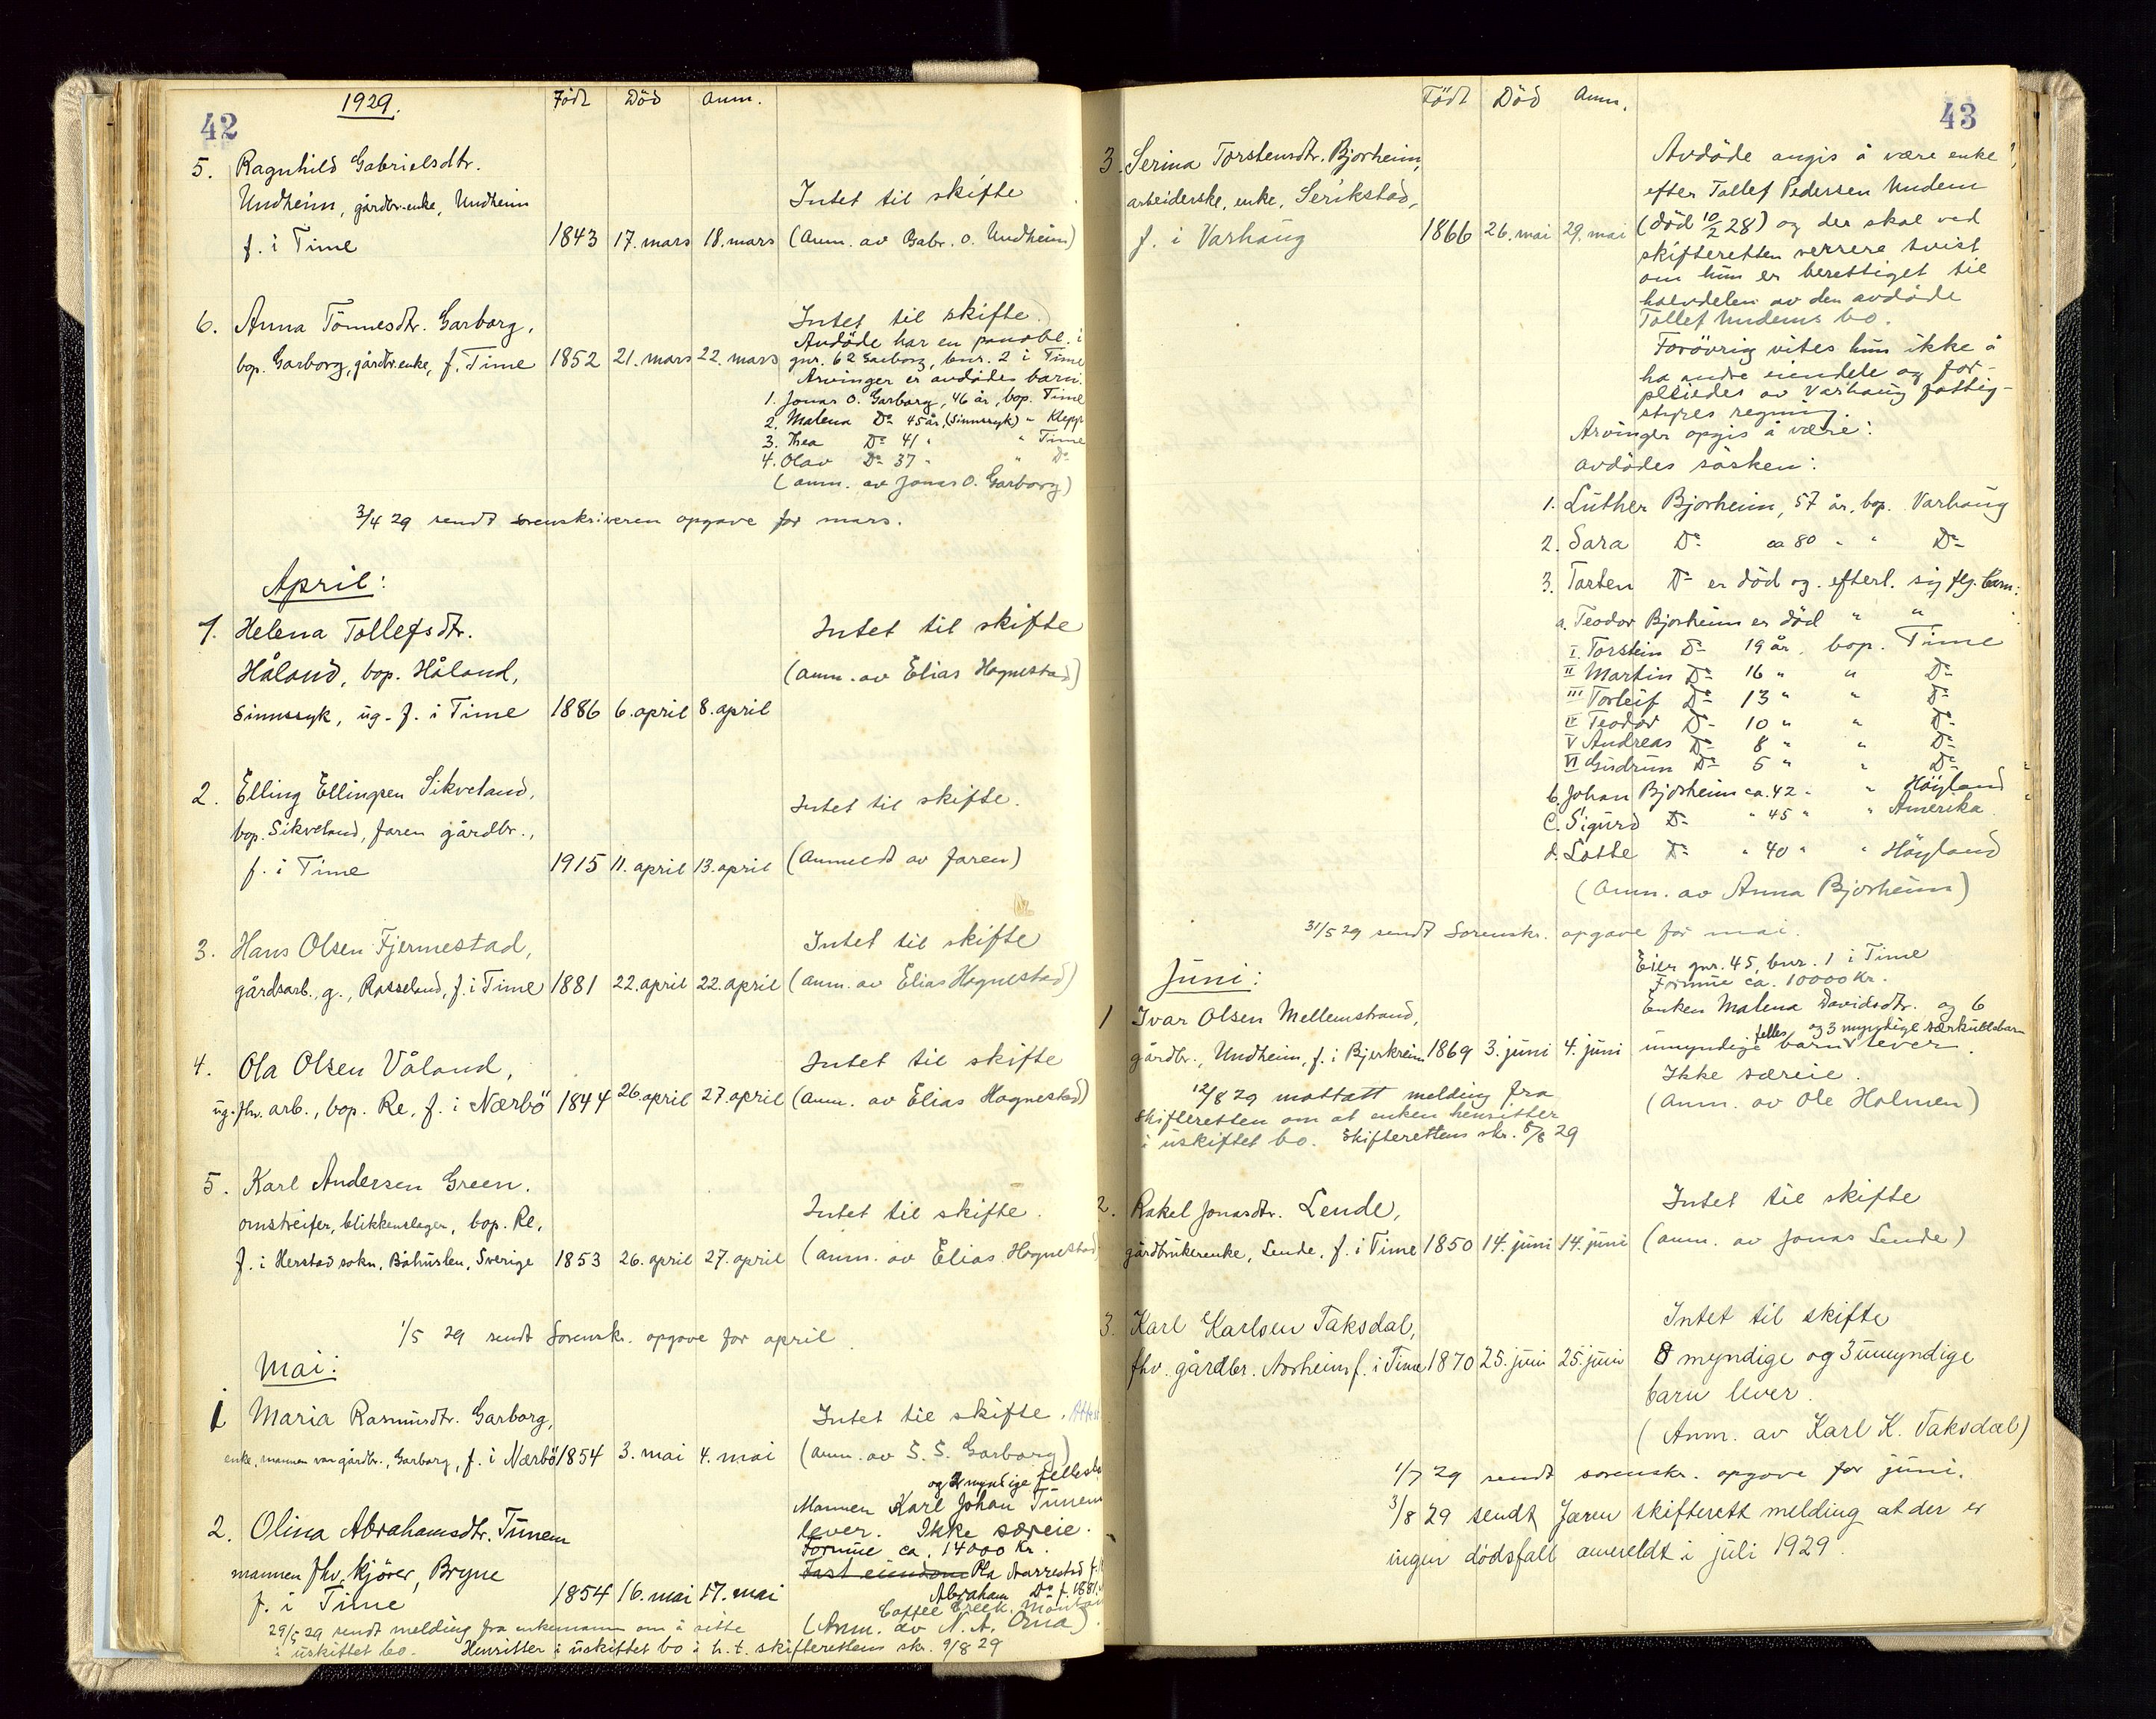 42
1929.
Född Död Anm.
5. Ragnhild Gabrielsdtr.
Undheim, gårdbr.enke, Undheim
f. i Time 1843 17. mars 18. mars
Intet til skifte
(Anm. av Gabr. O. Undheim)
6. Anna Tönnesdtr. Garborg,
bop. Garborg, gårdbr.enke, f. Time 1852 21. mars 22. mars
Intet til skifte
Avdöde har en panobl. i
gnr. 62 Garborg, bnr. 2 i Time
Arvinger er avdödes barn.
1. Jonas O. Garborg, 46 år, bop. Time
2. Malena Do 45 år, (Sinnssyk) " Klepp
3. Thea Do 41 " " Time
4. Olav Do 37 " " Do
(anm. av Jonas O. Garborg)
3/4 29 sendt sorenskriveren opgave for mars.
April:
1. Helena Tollefsdtr.
Håland, bop. Håland,
Sinnssyk, ug. f. i Time 1886 6. april 8. april
Intet til skifte
(anm. av Elias Hognestad)
2. Elling Ellingsen Sikveland,
bop. Sikveland, faren gårdbr.,
f. i Time 1915 11. april 13. april
Intet til skifte.
(Anmeldt av faren)
3. Hans Olsen Fjermestad,
gårdsarb., g., Rosseland, f. i Time 1881 22. april 22. april
Intet til skifte
(anm. av Elias Hognestad)
4. Ola Olsen Våland,
ug. fhv. arb., bop. Re, f. i Nærbö 1844 26. april 27. april
Intet til skifte
(anm. av Elias Hognestad)
5. Karl Andersen Green.
omstreifer, blikkenslager, bop. Re,
f. i Herstad sokn, Båhuslen, Sverige 1853 26. april 27. april
Intet til skifte.
(anm. av Elias Hognestad
1/5 29 sendt Sorenskr. opgave for april
Mai:
1 Maria Rasmusdtr. Garborg,
enke, mannen var gårdbr., Garborg, f. i Nærbö 1854 3. mai 4. mai
Intet til skifte.
(anm. av S. S. Garborg)
2. Olina Abrahamsdtr. Tunem
mannen fhv. kjörer, Bryne
f. i Time 1854 16. mai 17. mai
og 2 myndige
Mannen Karl Johan Tunem
lever. Ikke særeie.
Formue ca. 14000 Kr.
Fast eiendom Ola Aarrestad
Abraham Do f. 1881
Coffee Creek,
(Anm. av N. A. Orna)
29/5 29 sendt melding fra enkemann om å sitte
i uskiftet bo. Hensitter i uskiftet bo i h. t. skifterettens skr. 9/8 29
43
Född Död Anm.
3. Serina Torstensdtr. Bjorheim,
arbeiderske, enke, Serikstad,
f. i Varhaug 1866 26. mai 29. mai
Avdöde angis å være enke
efter Tollef Pedersen Undem
(död 10/2 28) og der skal ved
skifteretten verrere tvist
om hun er berettiget til
halvdelen av den avdöde
Tollef Undems bo.
Forövrig vites hun ikke å
ha andre eiendele og for-
pleiedes av Varhaug fattig-
styres regning.
Arvinger opgis å være:
avdödes sösken:
1. Luther Bjorheim, 57 år, bop. Varhaug
2. Sara Do ca 80 " " Do
3. Torten Do er död og efterl. sig flg. barn:
a. Teodor Bjorheim er död " "
I. Torstein Do 19 år, bop. Time
II Martin Do 16 " " Do
III Torleif Do 13 " " Do
IV Teodor Do 10 " " Do
V Andreas Do 8 " " Do
VI Gudrun Do 5 " " Do
b. Johan Bjorheim ca. 42 " " Höyland
c. Sigurd Do " 45 " " Amerika
d. Lotte Do " 40 " " Höyland
(Anm. av Anna Bjorheim)
31/5 29 sendt Sorenskr. opgave for mai.
Juni:
1 Ivar Olsen Mellemstrand,
gårdbr., Undheim, f. i Bjerkreim 1869 3. juni 4. juni
Eier gnr. 45, bnr. 1 i Time
Formue ca. 10000 Kr.
Enken Malena Davidsdtr. og 6
felles og 3 myndige særkullsbarn
umyndige barn lever.
Ikke særeie.
(Anm. av Ole Holmen)
12/8 29 mottatt melding fra
skifteretten om at enken hensitter
i uskiftet bo. Skifterettens skr. 5/8 29
2. Rakel Jonasdtr. Lende,
gårdbrukerenke, Lende, f. i Time 1850 14. juni 14. juni
Intet til skifte
(anm. av Jonas Lende)
3. Karl Karlsen Taksdal,
fhv. gårdbr. Aarheim f. i Time 1870 25. juni 25. juni
Intet til skifte
8 myndige og 3 umyndige
barn lever.
(Anm. av Karl K. Taksdal)
1/7 29 sendt sorenskr. opgave for juni.
3/8 29 sendt Jæren skifterett melding at der er
ingen dödsfall anmeldt i juli 1929.